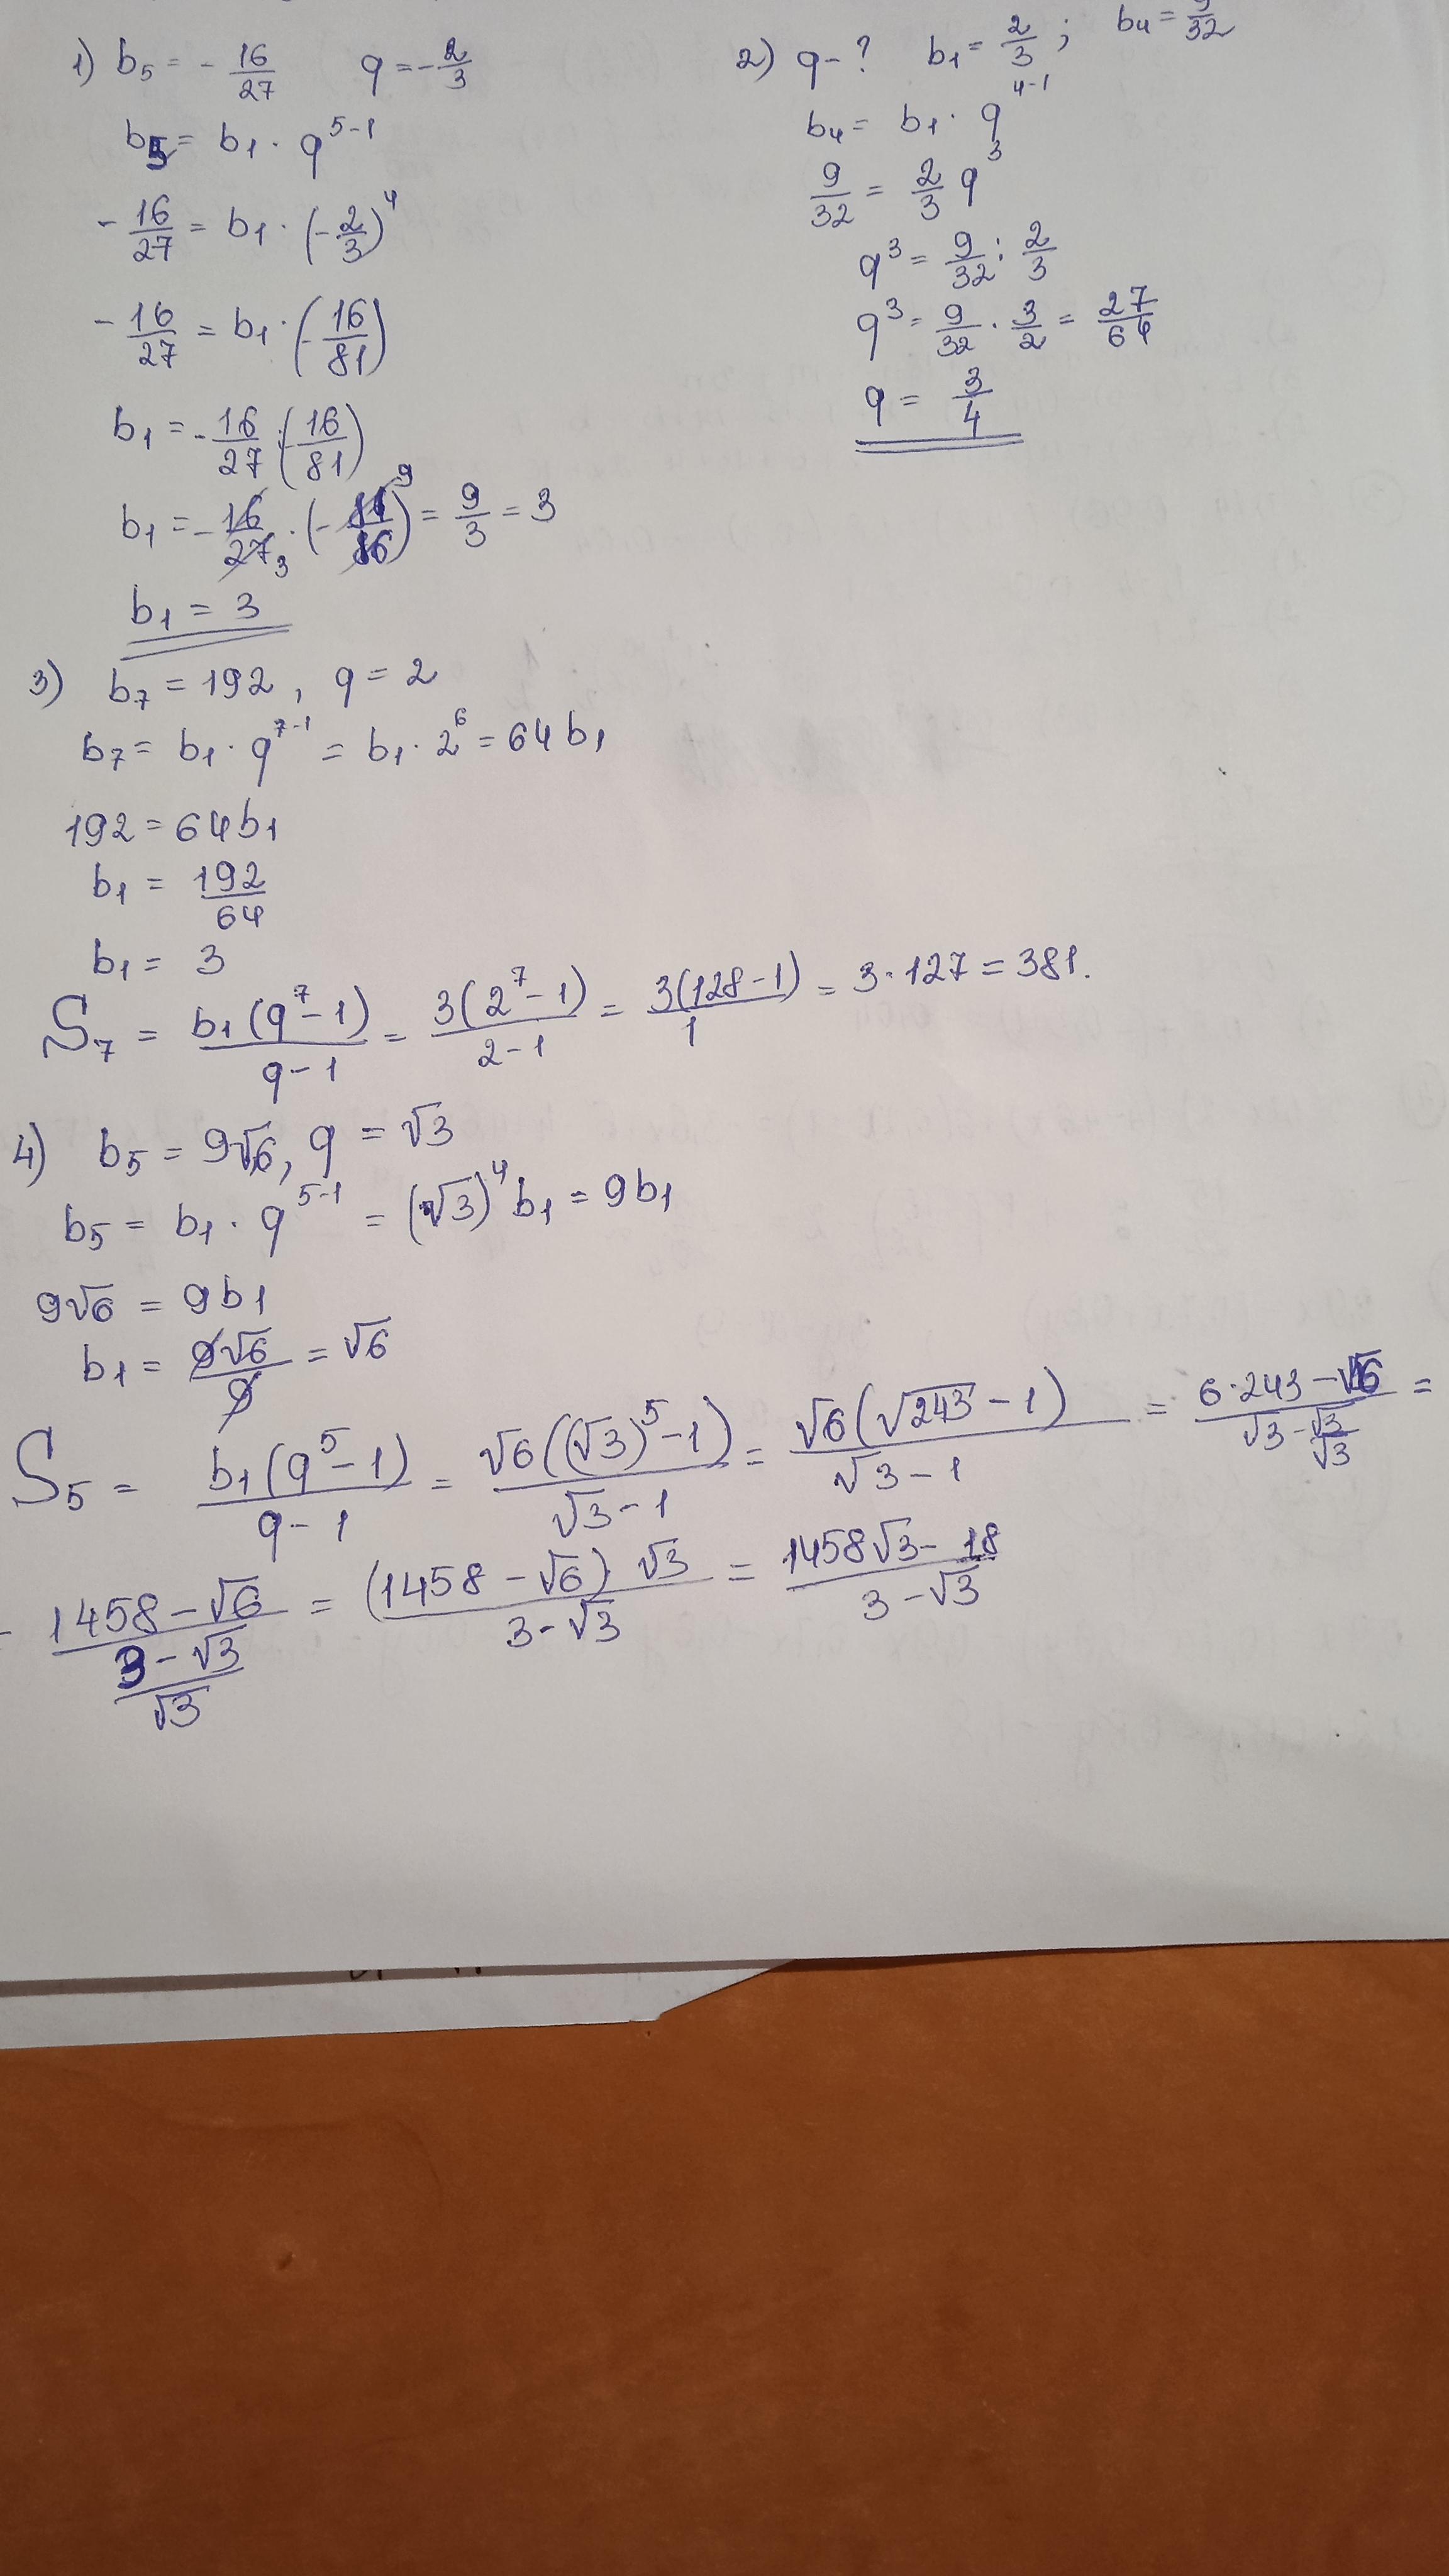 1) b₅ = - 16/27 q = - 2/3
b₅ = b₁ · q⁵⁻¹
- 16/27 = b₁ · (- 2/3)⁴
- 16/27 = b₁ · (- 16/81)
b₁ = - 16/27 : (- 16/81)
b₁ = - 16/27 ₃ · (- 81/16)⁹ = 9/3 = 3
b₁ = 3
2) q - ? b₁ = 2/3 ; b₄ = 9/32
b₄ = b₁ · q⁴⁻¹
9/32 = 2/3 q³
q³ = 9/32 : 2/3
q³ = 9/32 · 3/2 = 27/64
q = 3/4
3) b₇ = 192, q = 2
b₇ = b₁ · q⁷⁻¹ = b₁ · 2⁶ = 64b₁
192 = 64b₁
b₁ = 192/64
b₁ = 3
S₇ = b₁(q⁷ - 1)/(q - 1) = 3(2⁷ - 1)/(2 - 1) = 3(128 - 1)/1 = 3 · 127 = 381.
4) b₅ = 9√6, q = √3
b₅ = b₁ · q⁵⁻¹ = (√3)⁴b₁ = 9b₁
9√6 = 9b₁
b₁ = 9√6/9 = √6
S₅ = b₁(q⁵ - 1)/(q - 1) = √6((√3)⁵ - 1)/(√3 - 1) = √6(√243 - 1)/(√3 - 1) = (6 · 243 - √6)/(√3 - √3/√3) =
- (1458 - √6)/((3 - √3)/√3) = (1458 - √6) · √3/(3 - √3) = (1458√3 - 18)/(3 - √3)